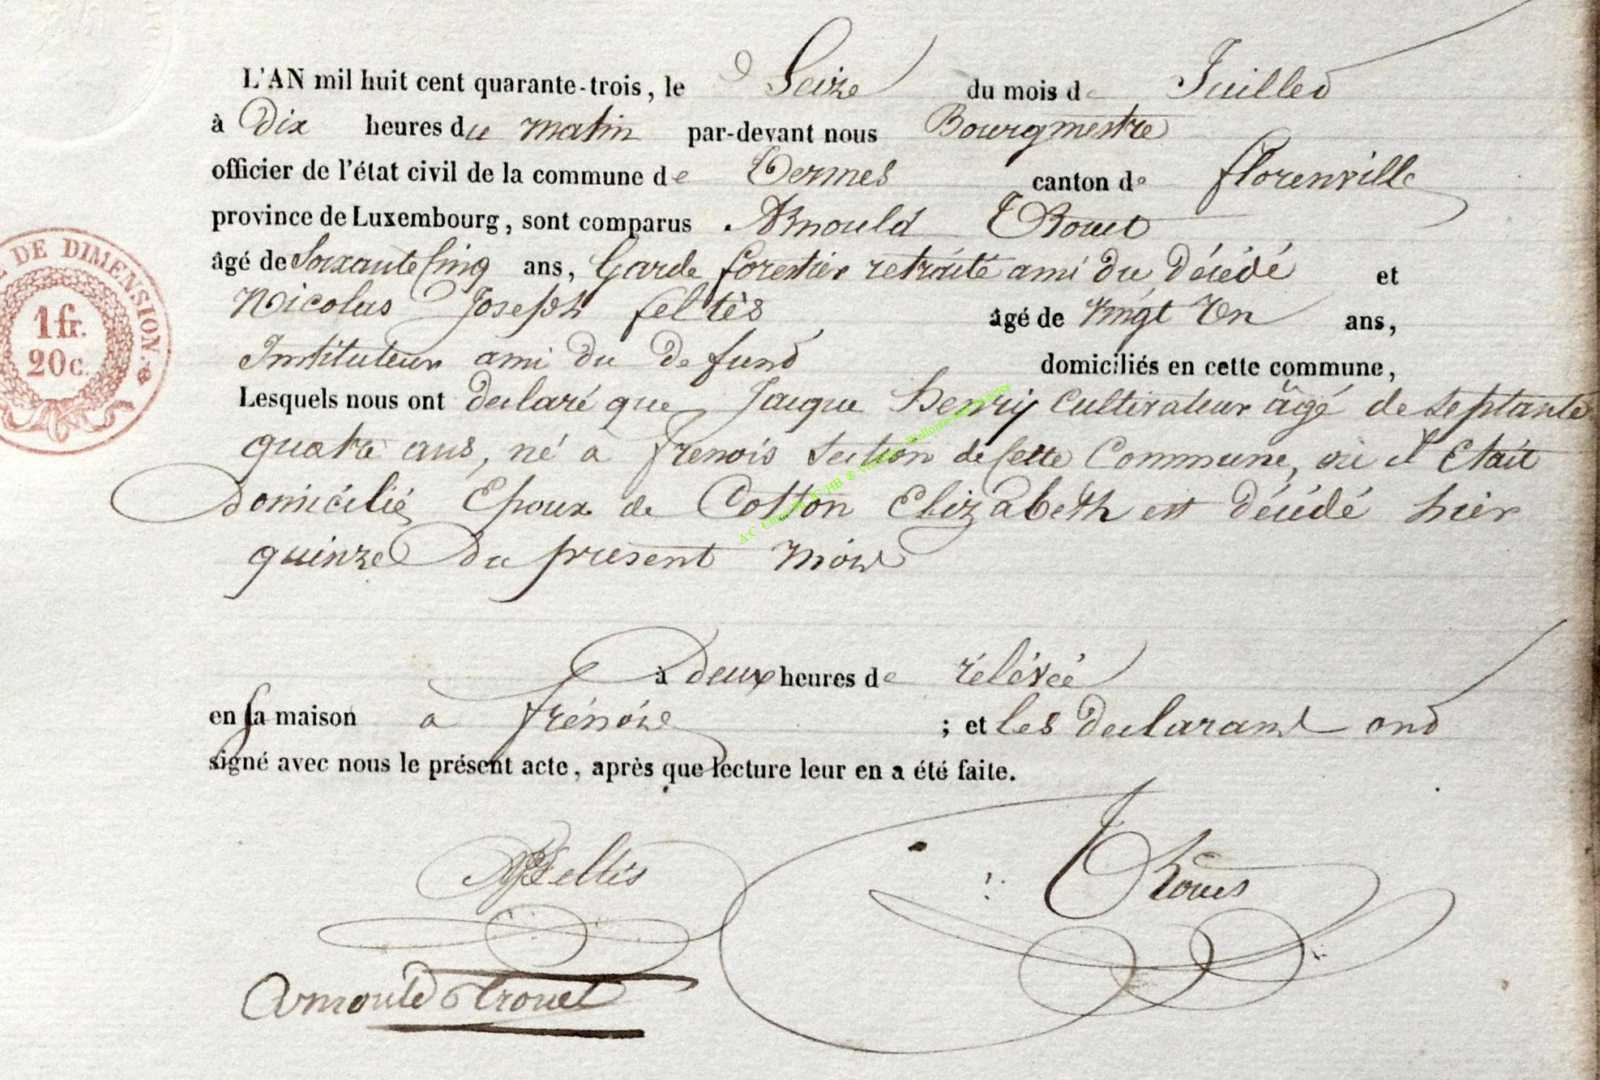 L'AN mil huit cent quarante-trois, le Seize du mois de Juillet
à Dix heures du matin par-devant nous Bourgmestre
officier de l'état civil de la commune de Termes canton de florenville
province de Luxembourg, sont comparus Arnould Trouet
âgé de Soixante Cinq ans, Garde forestier retraité ami du décédé et
Nicolas Joseph feltès âgé de vingt Un ans,
Instituteur ami du defund domiciliés en cette commune,
Lesquels nous ont declaré que Jacque henry Cultivateur âgé de septante
quatre ans, né a frenois Section de Cette Commune, où il Etait
domicilié Epoux de Cotton Elizabeth est décédé hier
quinze du present Mois
à deux heures de rélévée
en sa maison a frénois ; et les declarant ond
signé avec nous le présent acte, après que lecture leur en a été faite.
NJfeltès
Trouet
Arnould trouet
DE DIMENSION.
1 fr.
20 c.